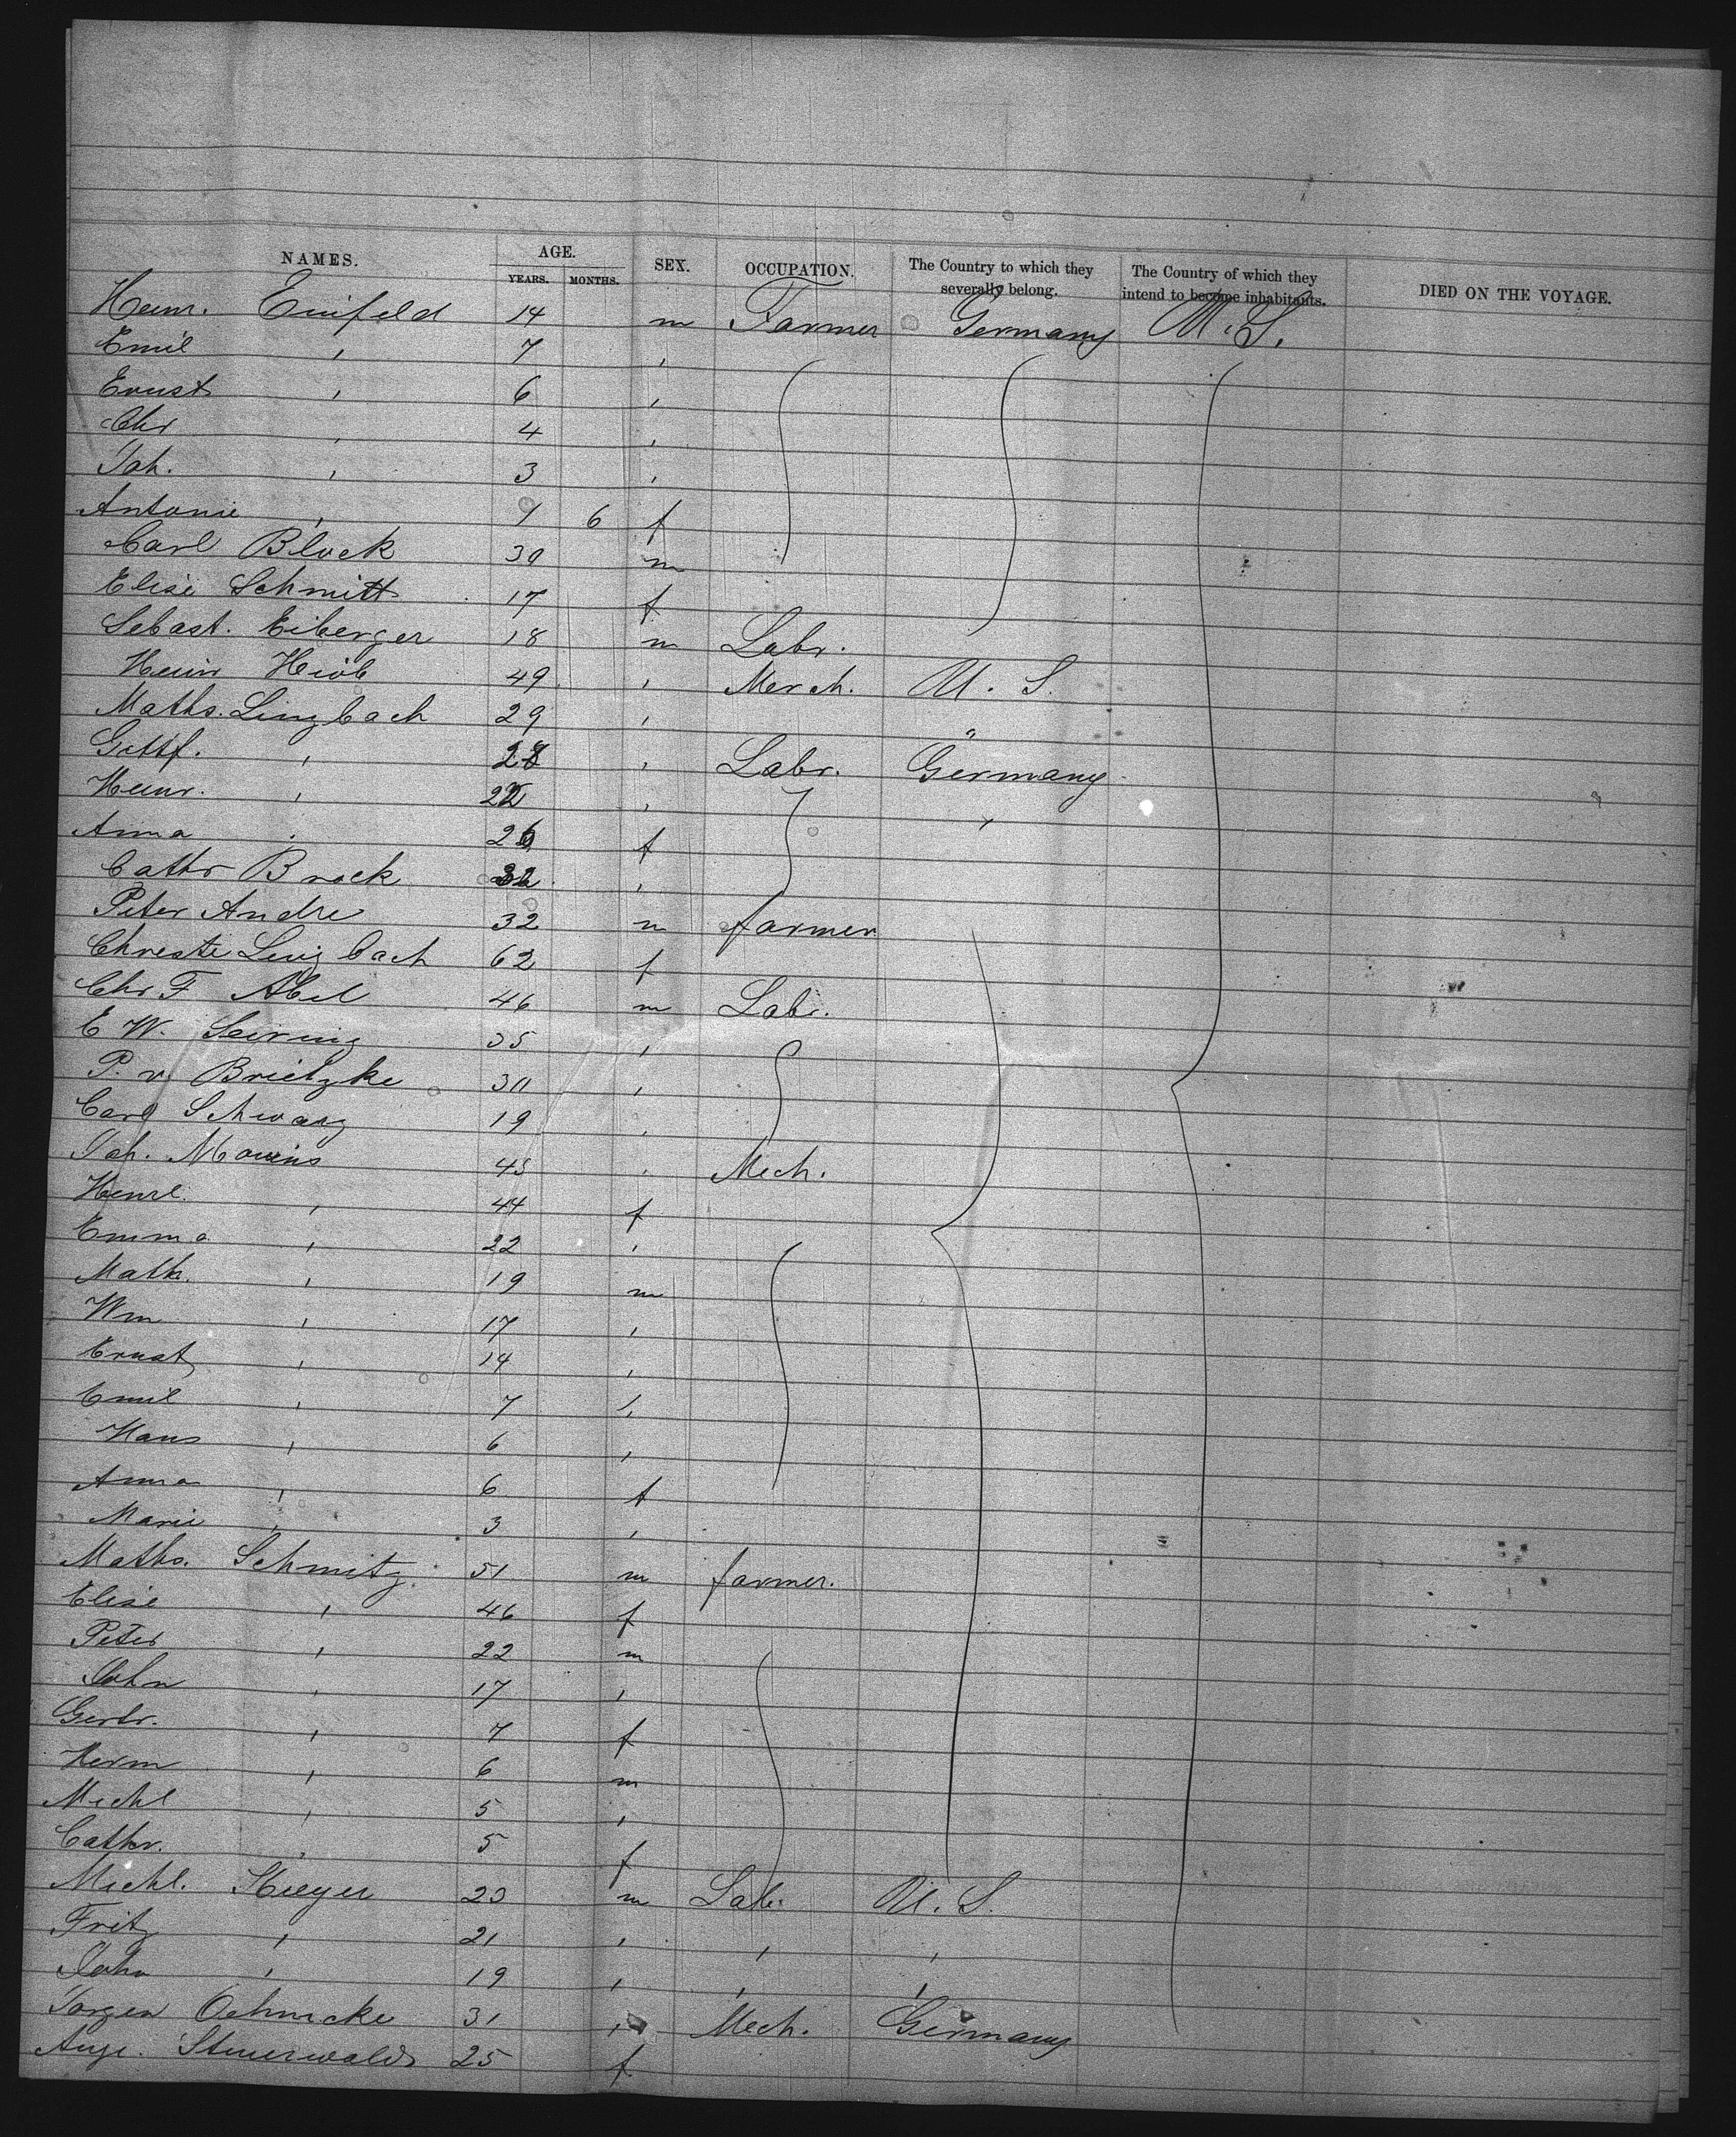 NAMES. AGE. YEARS. MONTHS. SEX. OCCUPATION. The Country to which they severally belong. The Country of which they intend to become inhabitants. DIED ON THE VOYAGE.
Heinr. Einfeld 14 m Farmer Germany U.S.
Emil " 7 "
Ernst " 6 "
Chr " 4 "
Joh. " 3 "
Antonie " 1 6 f
Carl Block 39 m
Elise Schmitt 17 f
Sebast. Eiberger 18 m Labr.
Heinr 49 " Merch. U.S.
Maths. Linzbach 29 " "
Gottf. " 28 " Labr. Germany
Heinr. " " "
Anna " 26 f
Cathr Brock 32 "
Peter Andre 32 m farmer
Christe Linzbach 62 f
Chr F Abel 46 m Labr.
E W. 35 "
P. v. Brietzke 30 "
Carl Schwarz 19 "
Joh. 45 " Mech.
Henrl. " 44 f
Emma " 22 "
Math. " 19 m
Wm " 17 "
Ernst " 14 "
Emil " 7 "
Hans " 6 "
Anna " 6 f
Marie " 3 "
Maths. Schmitz 51 m farmer.
Elise " 46 f
Peter " 22 m
John " 17 "
Gertr. " 7 f
Herm " 6 m
Michl " 5 "
Cathr. " 5 f
Michl. 23 m Labr. U.S.
Fritz " 21 " " "
John " 19 " " "
Jorgen Oehmcke 31 " Mech. Germany
Auge. Steuerwald 25 f